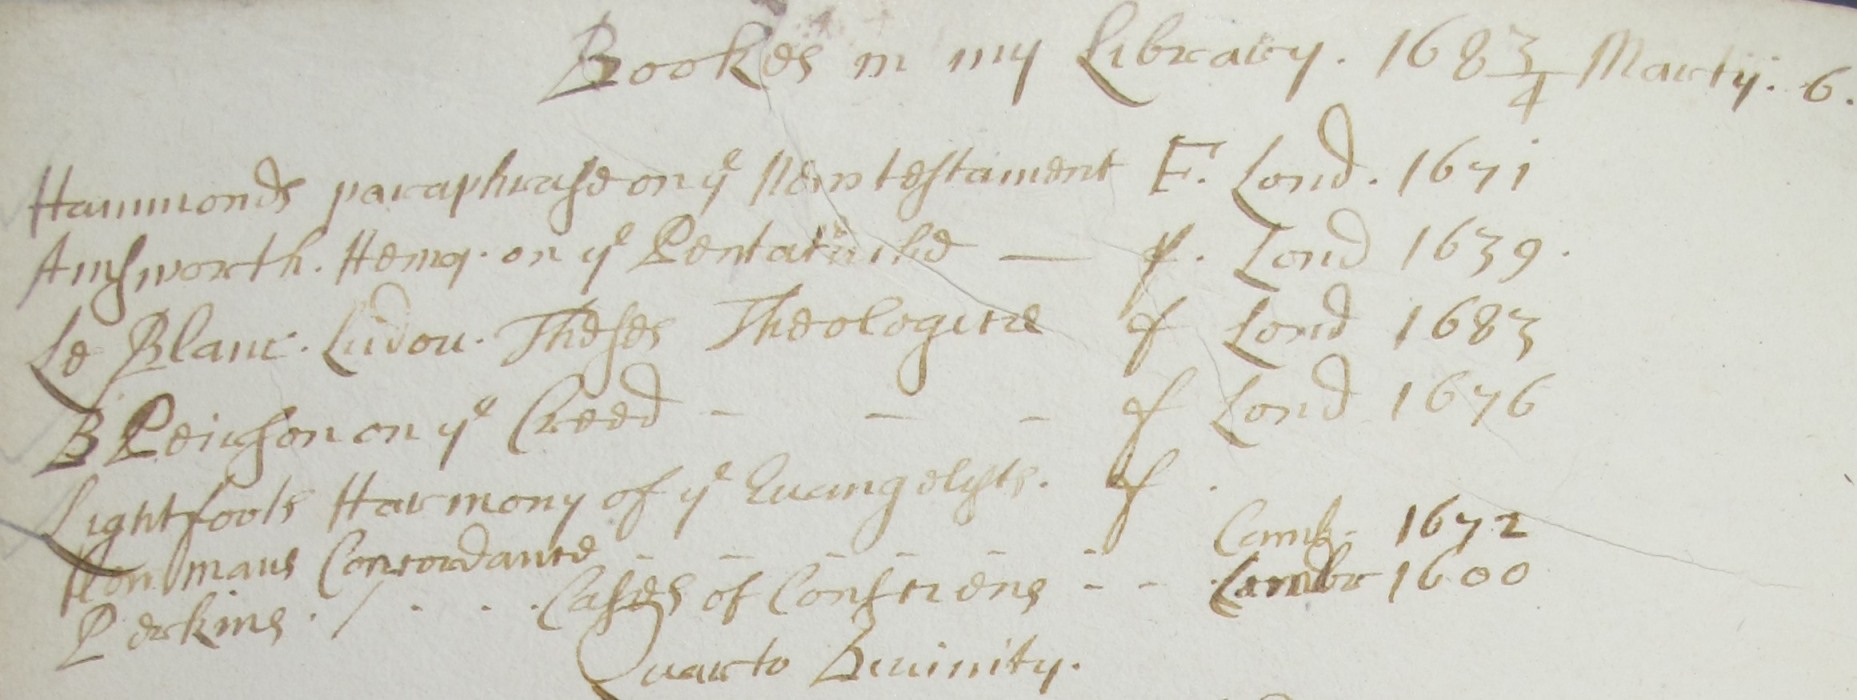 Bookes in my Library. 1683/4 Martij. 6.
Hammonds paraphrase on ye New testament F. Lond. 1671
Ainsworth. Henry. on ye Pentatuche — f. Lond 1639.
Le Blanc. Ludov. Theses Theologicæ f Lond 1683
B Peirson on ye Creed - - - f Lond 1676
Lightfoots Harmony of ye Evangelysts. f.
Newmans Concordance - - - - - - Camb. 1672
Perkins. / . . . Cases of Consciens - - Cambr 1600
Quarto Divinity.